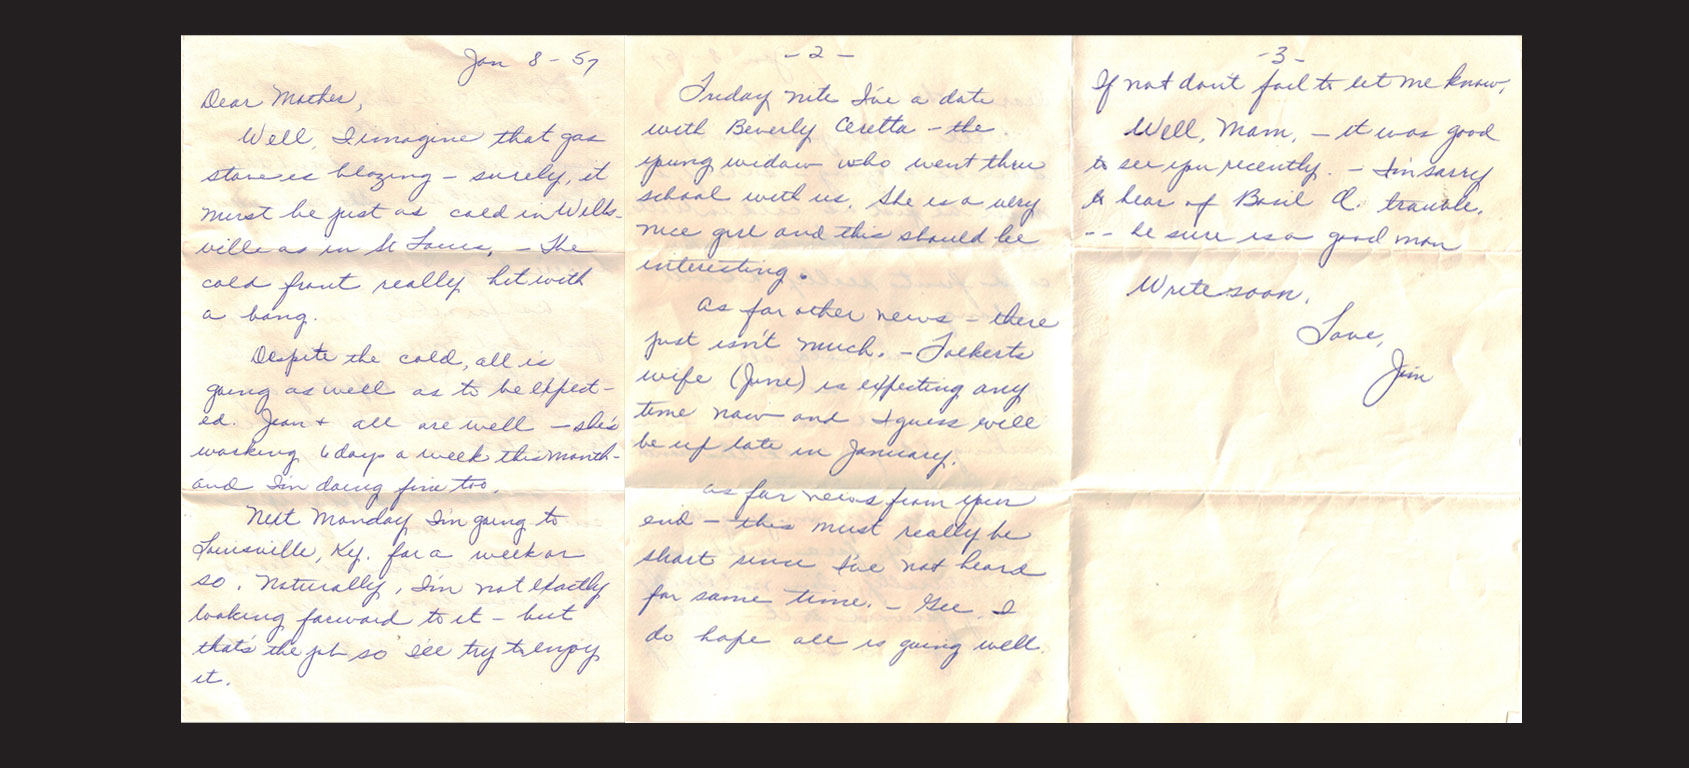 Jan 8-57
Dear Mother,
Well, I imagine that gas
stove is blazing - surely, it
must be just as cold in Wells-
ville as in St Louis. - The
cold front really hit with
a bang.
Despite the cold, all is
going as well as to be expect-
ed. Jean + all are well - she's
working 6 days a week this month -
and I'm doing fine too.
Next Monday I'm going to
Louisville, Ky. for a week or
so. Naturally, I'm not exactly
looking forward to it - but
that's the job so I'll try to enjoy
it.
- 2 -
Friday nite I've a date
with Beverly Ceretta - the
young widow who went thru
school with us. She is a very
nice girl and this should be
interesting.
As for other news - there
just isn't much. - Folkerts
wife (June) is expecting any
time now and I guess will
be up late in January.
As for news from your
end - this must really be
short since I've not heard
for some time. - Gee, I
do hope all is going well.
-3-
If not don't fail to let me know.
Well, Mom, - it was good
to see you recently. - I'm sorry
to hear of Basil O. trouble.
-- he sure is a good man
Write soon,
Love,
Jim